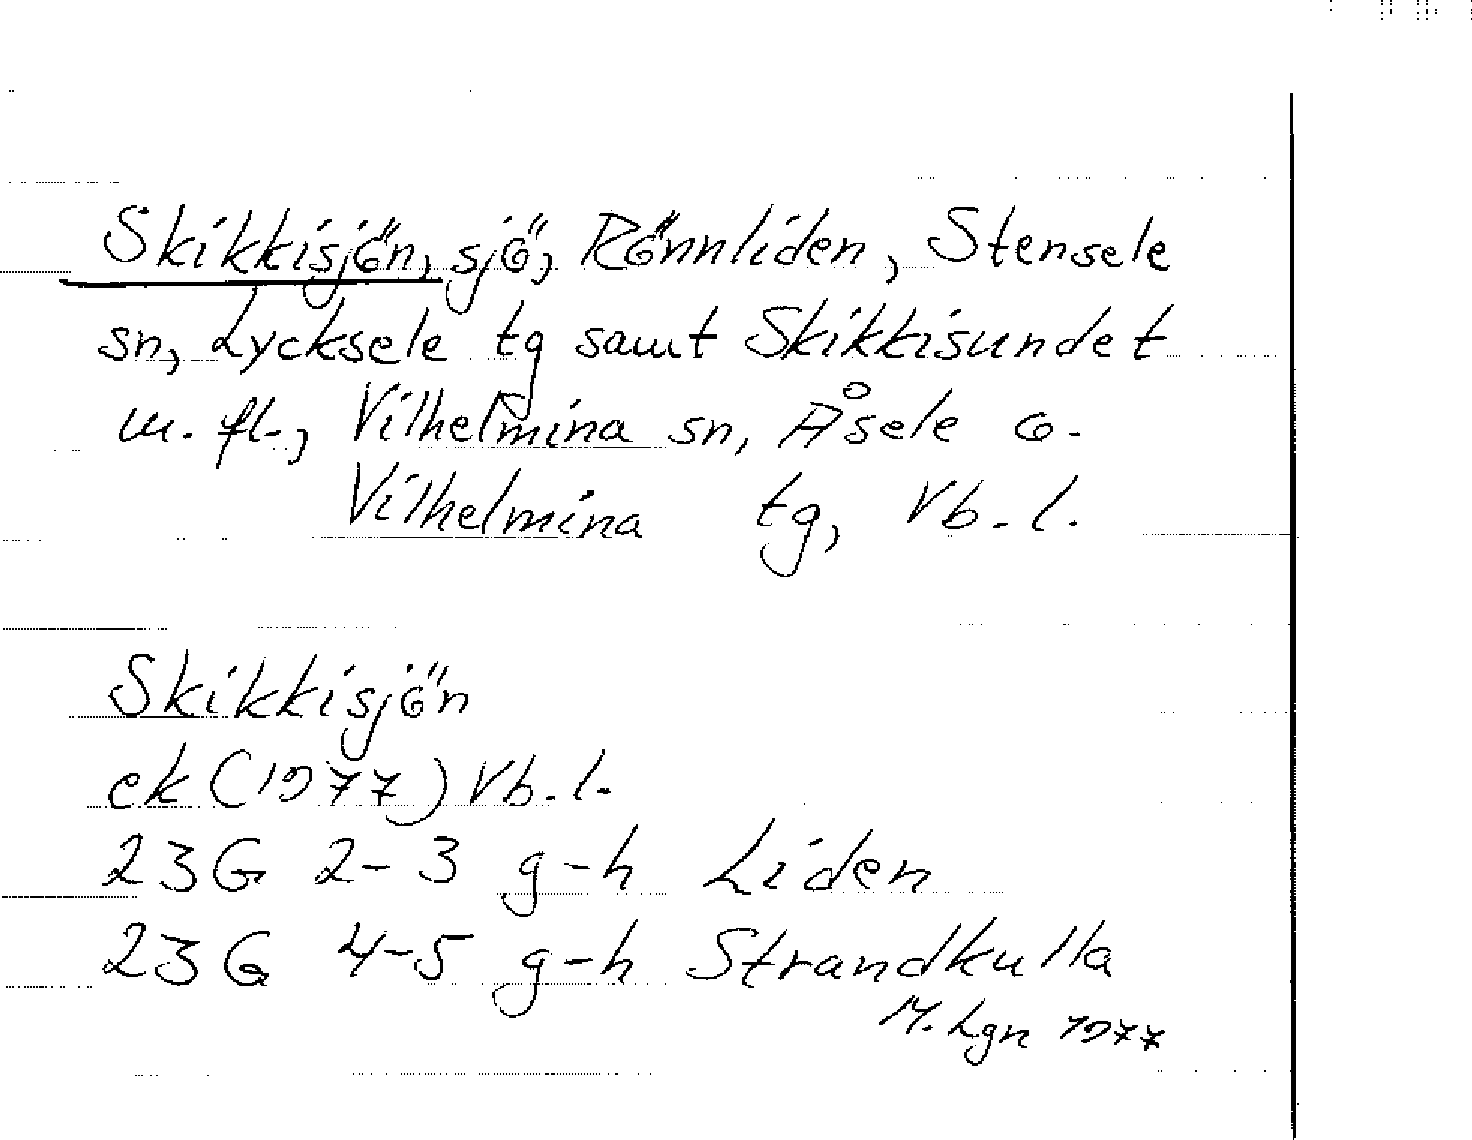 Skikkisjön, sjö, Rönnliden, Stensele
sn, Lycksele tg samt Skikkisundet
m. fl., Vilhelmina sn, Åsele o.
Vilhelmina tg, Vb. l.
Skikkisjön
ek (1977) Vb. l.
23G 2-3 g-h Liden
23G 4-5 g-h Strandkulla
M. Lgn 1977